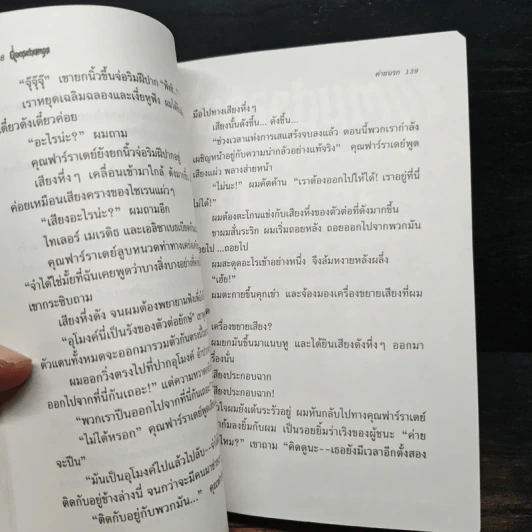 Goosebumps
“จุ๊จุ๊จุ๊” เขายกนิ้วขึ้นจ่อริมฝีปาก
เราหยุดเฉลิมฉลองและเงี่ยหูฟัง
เดี๋ยวดังเดี๋ยวค่อย
“อะไรน่ะ?” ผมถาม
คุณฟาร์ราเดย์ยังยกนิ้วจ่อริมฝีปากอยู่
เสียงหึ่งๆ เคลื่อนเข้ามาใกล้
ค่อยเหมือนเสียงครางของไซเรนแผ่วๆ
“เสียงอะไรน่ะ?” ผมถามอีก
ไทเลอร์ เมเรดิธ และเอลิซาเบธ
คุณฟาร์ราเดย์ลูบหนวดท่าทาง
“จำได้ไหมั้ยที่ฉันเคยพูดว่าบางสิ่งบางอย่าง
เขากระซิบถาม
เสียงหึ่งดัง จนผมต้องพยายาม
“อุโมงค์นี่เป็นรังของตัวต่อยักษ์”
ตัวแดนทั้งหมดจะออกมารวมตัวกัน
ผมออกวิ่งตรงไปที่ปากอุโมงค์
ออกไปจากที่นี่กันเถอะ!”
“พวกเราป็นออกไปจากที่นี่กันเถอะ
“ไม่ได้หรอก” คุณฟาร์ราเดย์
จะปีน”
“มันเป็นอุโมงค์ไปแล้วไปลับ--
ติดกับอยู่ข้างล่างนี่ จนกว่าจะมีคนมา
“ติดกับอยู่กับพวกมัน...”
ค่ายนรก 139
มือไปทางเสียงหึ่งๆ
เสียงนั้นดังขึ้น... ดังขึ้น...
“ช่วงเวลาแห่งการเสแสร้งจบลงแล้ว ตอนนี้พวกเรากำลัง
เผชิญหน้าอยู่กับความน่ากลัวอย่างแท้จริง” คุณฟาร์ราเดย์พูด
เสียงแผ่ว พลางส่ายหน้า
“ไม่นะ!” ผมคัดค้าน “เราต้องออกไปให้ได้! เราอยู่ที่นี่
ไม่ได้!”
ผมต้องตะโกนแข่งกับเสียงหึ่งของตัวต่อที่ดังมากขึ้น
ขาผมสั่นระริก ผมเริ่มถอยหลัง ถอยออกไปจากพวกมัน
...ถอยไป
ผมสะดุดอะไรเข้าอย่างหนึ่ง จึงล้มหงายหลังผลึ่ง
“เฮ้ย!”
ผมตะกายขึ้นคุกเข่า และจ้องมองเครื่องขยายเสียงที่ผม
เครื่องขยายเสียง?
ผมยกมันขึ้นมาแนบหู และได้ยินเสียงดังหึ่งๆ ออกมา
เสียงประกอบฉาก
เสียงประกอบฉาก!
ผมยังเต้นระรัวอยู่ ผมหันกลับไปทางคุณฟาร์ราเดย์
ยิ้มกับผม เป็นรอยยิ้มร่าเริงของผู้ชนะ “ค่าย
ไหม?” เขาถาม “คิดดูนะ--เธอยังมีเวลาอีกตั้งสอง